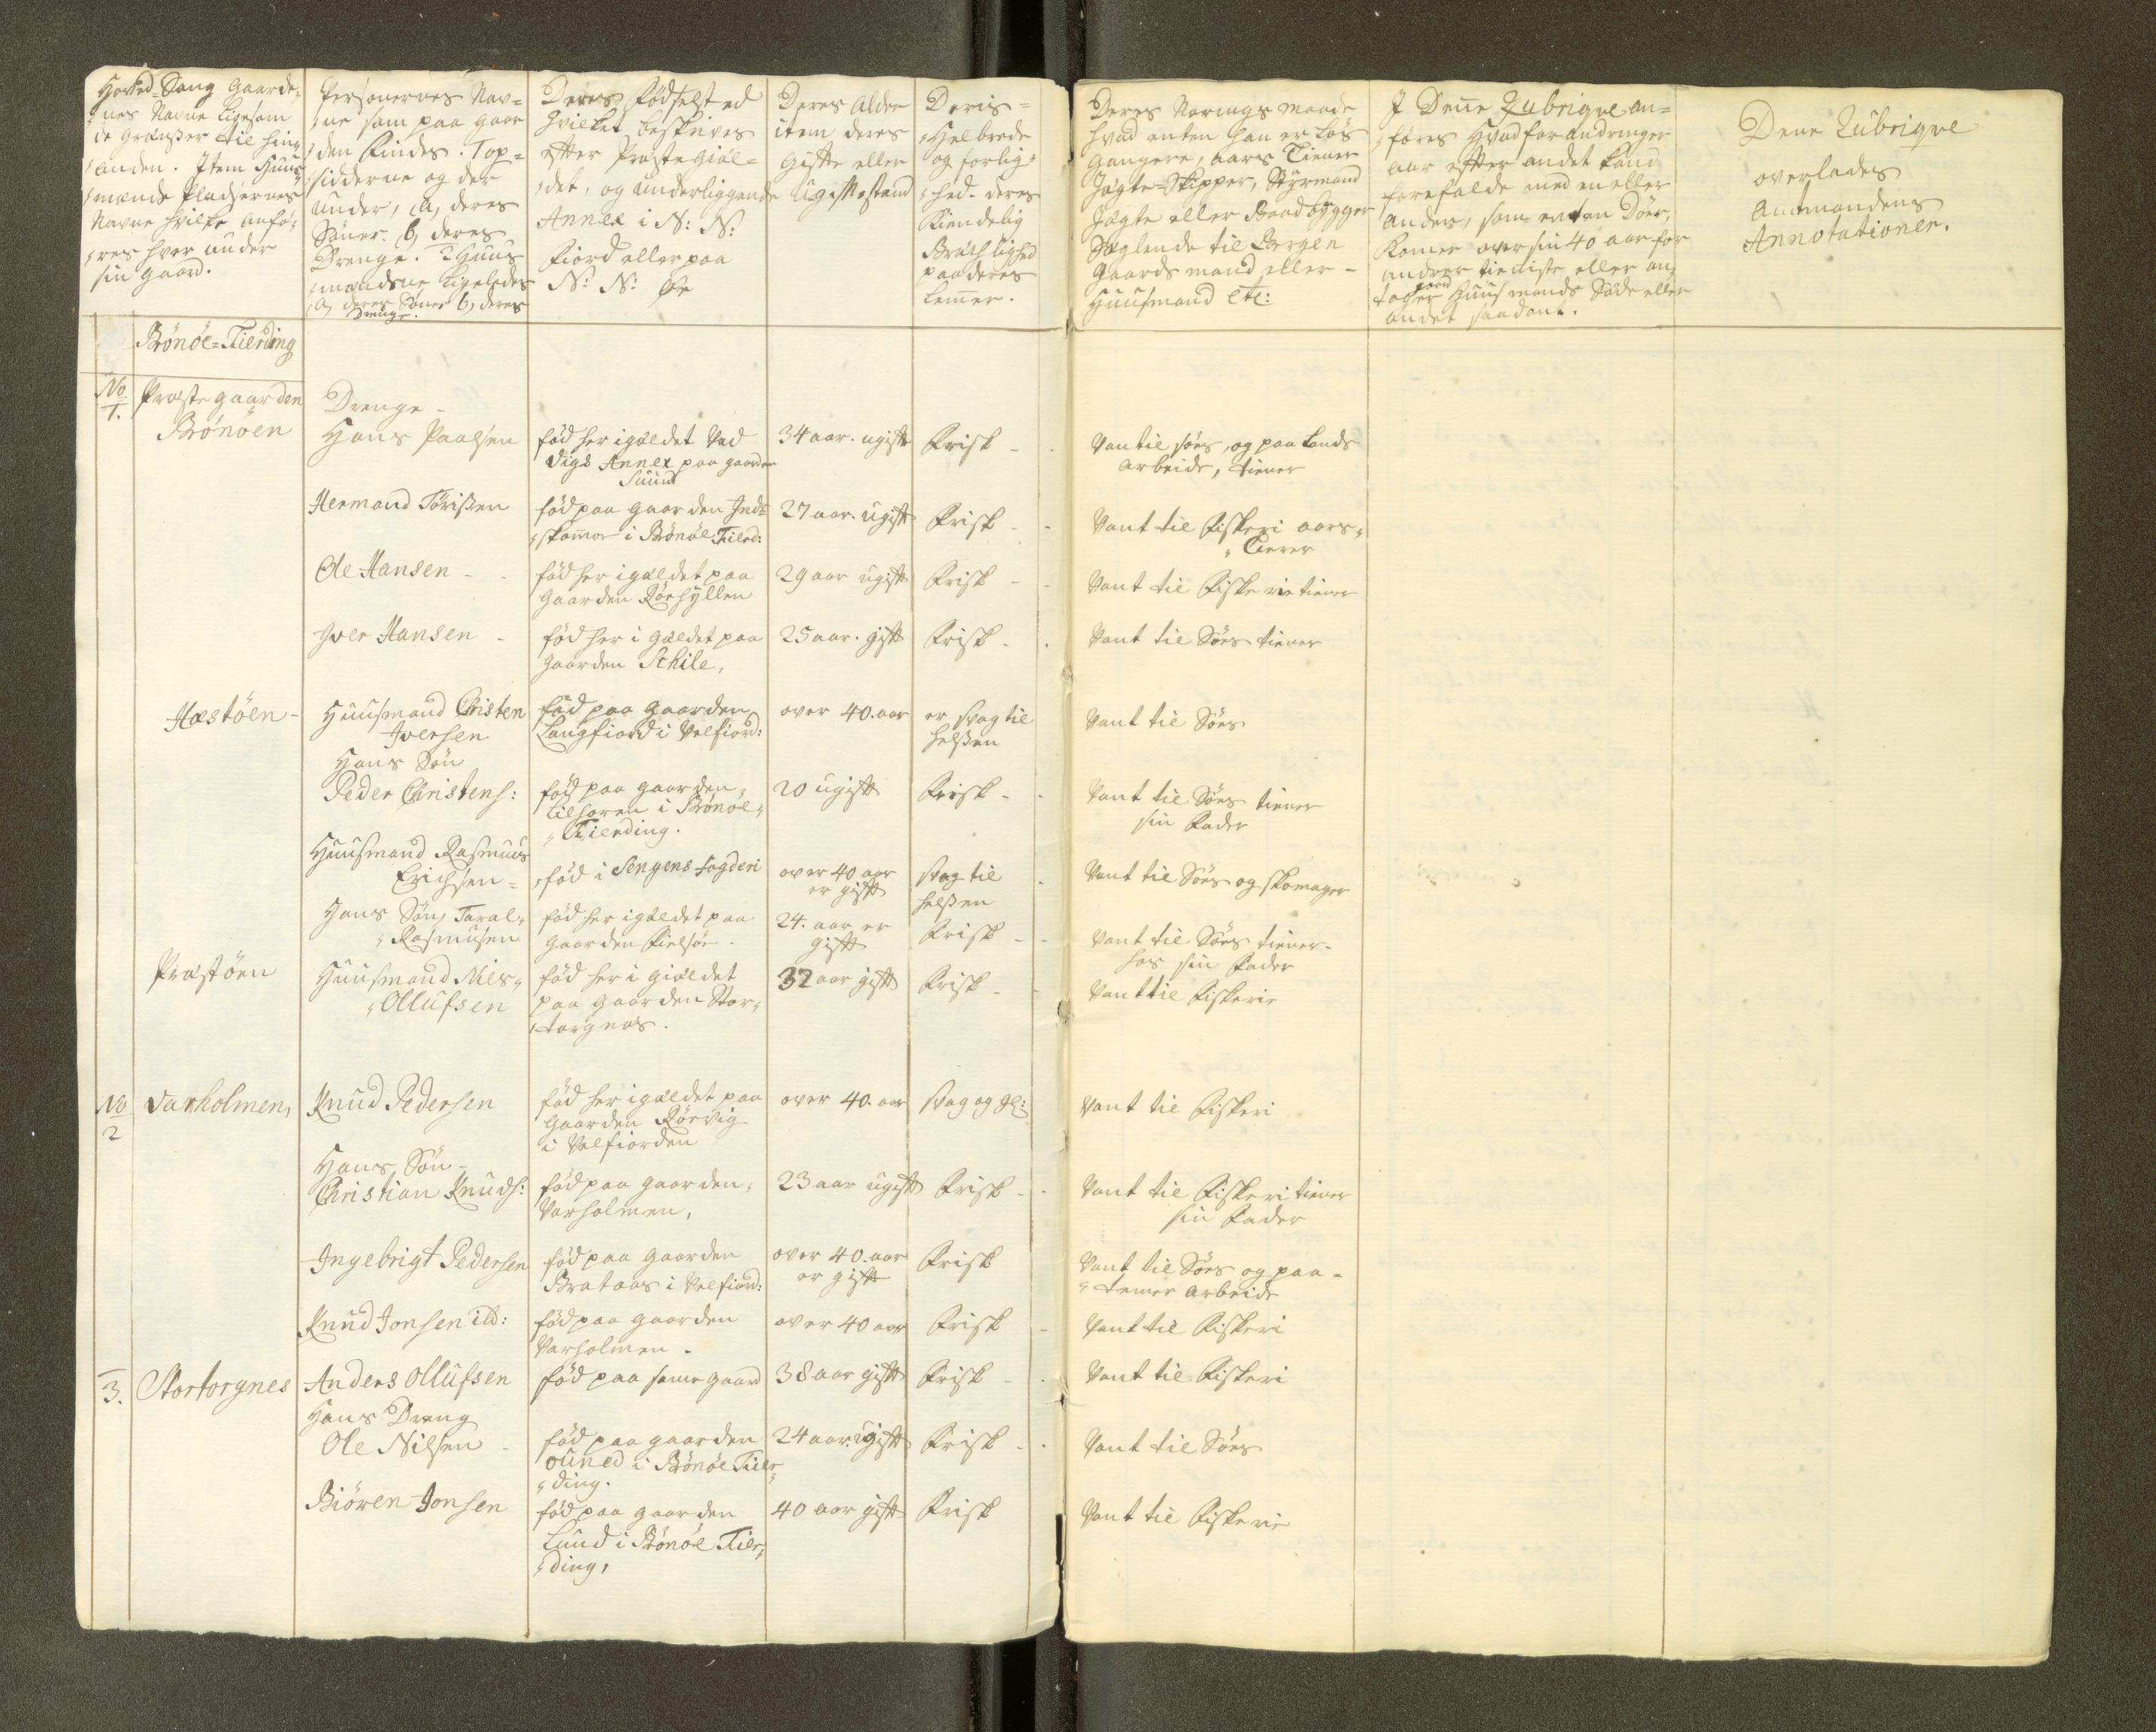 Hoved-Sang Gaarde,
nes Navne Ligesom
de Grændser til hin
anden. Item Huus
mænds Pladsernes
Navne hvilke anfö,
res hver under
sin Gaard.
Personernes Nav=
ne som paa Gaar
den Findes. 1 op=
sidderne og der
under, a, deres
Sönner. b, deres
Drenge. 2 Huus
mændene Ligeledes
a, deres Sönner b, deres
Drenge.
Deres Födselsted
hvilket beskrives
efter Præstegiæl=
det, og underliggende
Annex i N: N:
Fiord eller paa
N: N: Öe
Deres Alder
item deres
Gifte eller
Ugiftestand
Deris=
Helbrede
og forlig=
hed. deres
Kiendelig
Bræchlighed
paa deres
Lemer.
Deres Nærings maade
hvad enten han er Lös
Gængere, aars Tiener
Jægte-Skipper, Styrmand
Jægte eller Baad bygger
Seglende til Bergen
Gaardsmand eller -
Huusmand etc:
J Dene Rubriqve an=
föres hvad forandringer
aar efter andet kand
forefalde med en eller
anden, som enten Döer,
Komer over sin 40 aar for
andrer tieniste eller an,
tager gaard Huusmands Sæde eller
andet saadant.
Dene Rubriqve
overlades
Amtmandens
Annotationer.
Brönöe=Fierding
No 1. Præstegaarden
Brönöen
Drenge -
Hans Paalsen
föd her i gieldet Vad
Vigs Annex paa gaarden
Suund
34 aar. ugift
Frisk -
Van til söes, og paa Lands
Arbeide, tiener
Hermand Törissen
föd paa Gaarden Ind=
skomor i Brönöe Fierd:
27 aar. ugift
Frisk -
Vant til Fiskeri aars,
Tiener
Ole Hansen -
föd her i gieldet paa
Gaarden Röehyllen
29 aar ugift
Frisk -
Vant til Fiskerie tiener
Jver Hansen -
föd her i gieldet paa
gaarden Schile,
25 aar. gift
Frisk -
Vant til Söes tiener
Hæstöen -
Huusmand Christen
Jversen
föd paa Gaarden
Langfiord i Velfiord:
over 40. aar
er svag til
helsen
Vant til Söes
Hans Sön
Peder Christens:
föd paa gaarden,
Tilhoren i Brönöe,
Fierding.
20 ugift
Frisk -
Vant til Söes tiener
sin Fader
Huusmand Rasmuus
Erichsen =
föd i Sengens fogderi
over 40 aar
er gift
svag til
helsen
Vant til Söes og skomager
Hans Sön, Taral,
Rasmusen
föd her i gieldet paa
gaarden Fielsöe.
24. aar er
gift
Frisk -
Vant til Söes tiener-
hos sin Fader
Præstöen
Huusmand Niels,
Ollufsen
föd her i gieldet
paa gaarden Stor,
torgnæs.
32 aar gift
Frisk -
Vant til Fiskerie
No 2 Varholmen,
Knud Pedersen
föd her i gieldet paa
Gaarden Rörvig
i Velfiorden
over 40. aar
svag og gl:
Vant til Fiskeri
Hans Sön -
Christian Knuds:
föd paa gaarden,
Varholmen,
23 aar ugift
Frisk -
Vant til Fiskeri tiener
sin Fader
Ingebrigt Pedersen
föd paa Gaarden
Brataas i Velfiord:
over 40. aar
er gift
Frisk
Vant til Söes og paa -
Arbeide
Knud Jonsen ild:
föd paa Gaarden
Varholmen.
over 40 aar
Frisk -
Vant til Fiskeri
3. Stortorgnes
Anders Ollufsen
föd paa same gaard
38 aar gift
Frisk -
Vant til Fiskeri
Hans Dreng
Ole Nilsen -
föd paa gaarden
i Brönöe Fier,
ding.
24 aar. ugift
Frisk -
Vant til Söes
Biören Jonsen
föd paa gaarden
Lund i Brönöe Fier,
ding,
40 aar gift
Frisk
Vant til Fiskerie